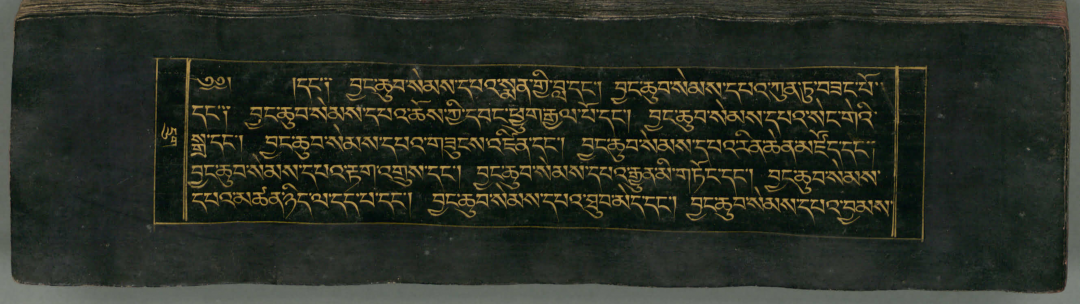 ༄༅། །དང་༑ བྱང་ཆུབ་སེམས་དཔའ་སྨན་གྱི་བླ་དང་། བྱང་ཆུབ་སེམས་དཔའ་ཀུན་ཏུ་བཟང་པོ་
དང་༑ བྱང་ཆུབ་སེམས་དཔའ་ཆོས་ཀྱི་དབང་ཕྱུག་རྒྱལ་པོ་དང་། བྱང་ཆུབ་སེམས་དཔའ་སེང་གེའི་
སྒྲ་དང་། བྱང་ཆུབ་སེམས་དཔའ་གཟུངས་འཛིན་དང་། བྱང་ཆུབ་སེམས་དཔའ་རིན་ཆེན་མཛོད་དང་༑
བྱང་ཆུབ་སེམས་དཔའ་རྟག་འགྲུས་དང་། བྱང་ཆུབ་སེམས་དཔའ་རྒྱུན་མི་གཏོང་དང་། བྱང་ཆུབ་སེམས་
དཔའ་མཚན་ཉིད་ལ་དང་པ་དང་། བྱང་ཆུབ་སེམས་དཔའ་སྤུབ་མེད་དང་། བྱང་ཆུབ་སེམས་དཔའ་བྱམས་